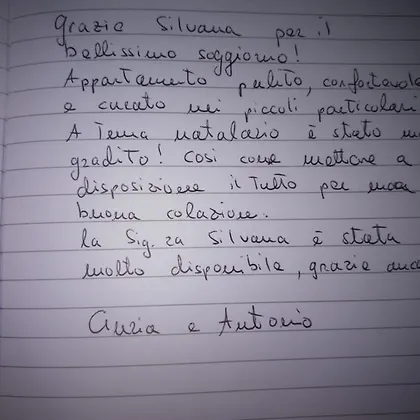 grazie Silvana per il
bellissimo soggiorno!
Appartamento pulito, confortevole
e curato nei piccoli particolari
A Tema natalazio è stato
gradito! Così come mettere a
disposizione il Tutto per
buona colazione.
la Sig.ra Silvana è stata
molto disponibile, grazie anc
Cinzia e Antonio